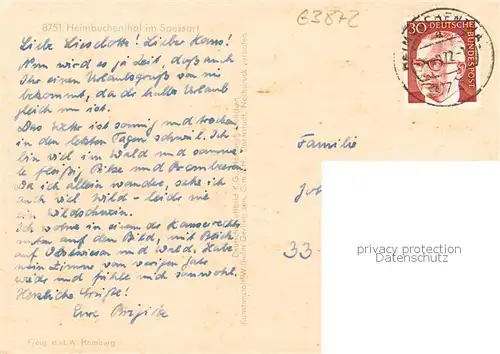 8751 Heimbuchenthal im Spessart
E3872
Liebe Lieselotte! Lieber Hans!
Nun wird es ja Zeit, daß auch
Ihr einen Urlaubsgruß von mir
bekommt, da der halbe Urlaub
gleich um ist.
Das Wetter ist sonnig und trocken,
in den letzten Tagen schwül. Ich
bin viel im Wald und samme-
le fleißig Pilze und Brombeeren.
Da ich allein wandere, sehe ich
auch viel Wild - leider nie
ein Wildschwein.
Ich wohne in einem der
unten auf dem Bild, mit Blick
auf und Wald. Habe
mein Zimmer vom vorigen Jahr
wieder und fühle mich sauwohl.
Herzliche Grüße!
Eure Brigitte
30
DEUTSCHE
BUNDESPOST
Familie
Joh
33-
privacy protection